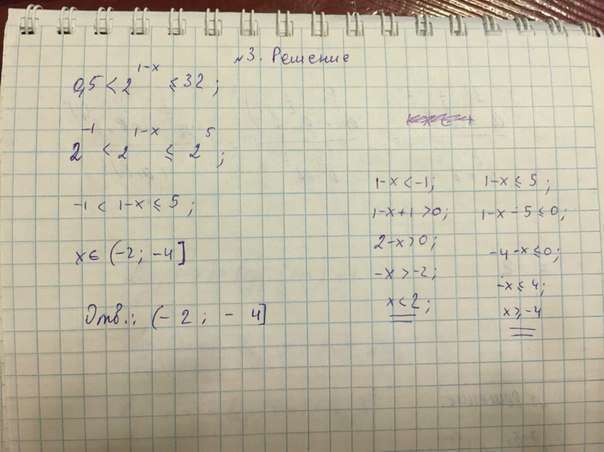 №3. Решение
0,5 < 2^{1-x} ≤ 32;
2^{-1} < 2^{1-x} ≤ 2^{5};
-1 < 1-x ≤ 5;
x ∈ (-2; -4]
Отв.: (-2; -4]
1-x < -1;
1-x+1 > 0;
2-x > 0;
-x > -2;
x < 2;
1-x ≤ 5;
1-x-5 ≤ 0;
-4-x ≤ 0;
-x ≤ 4;
x ≥ -4